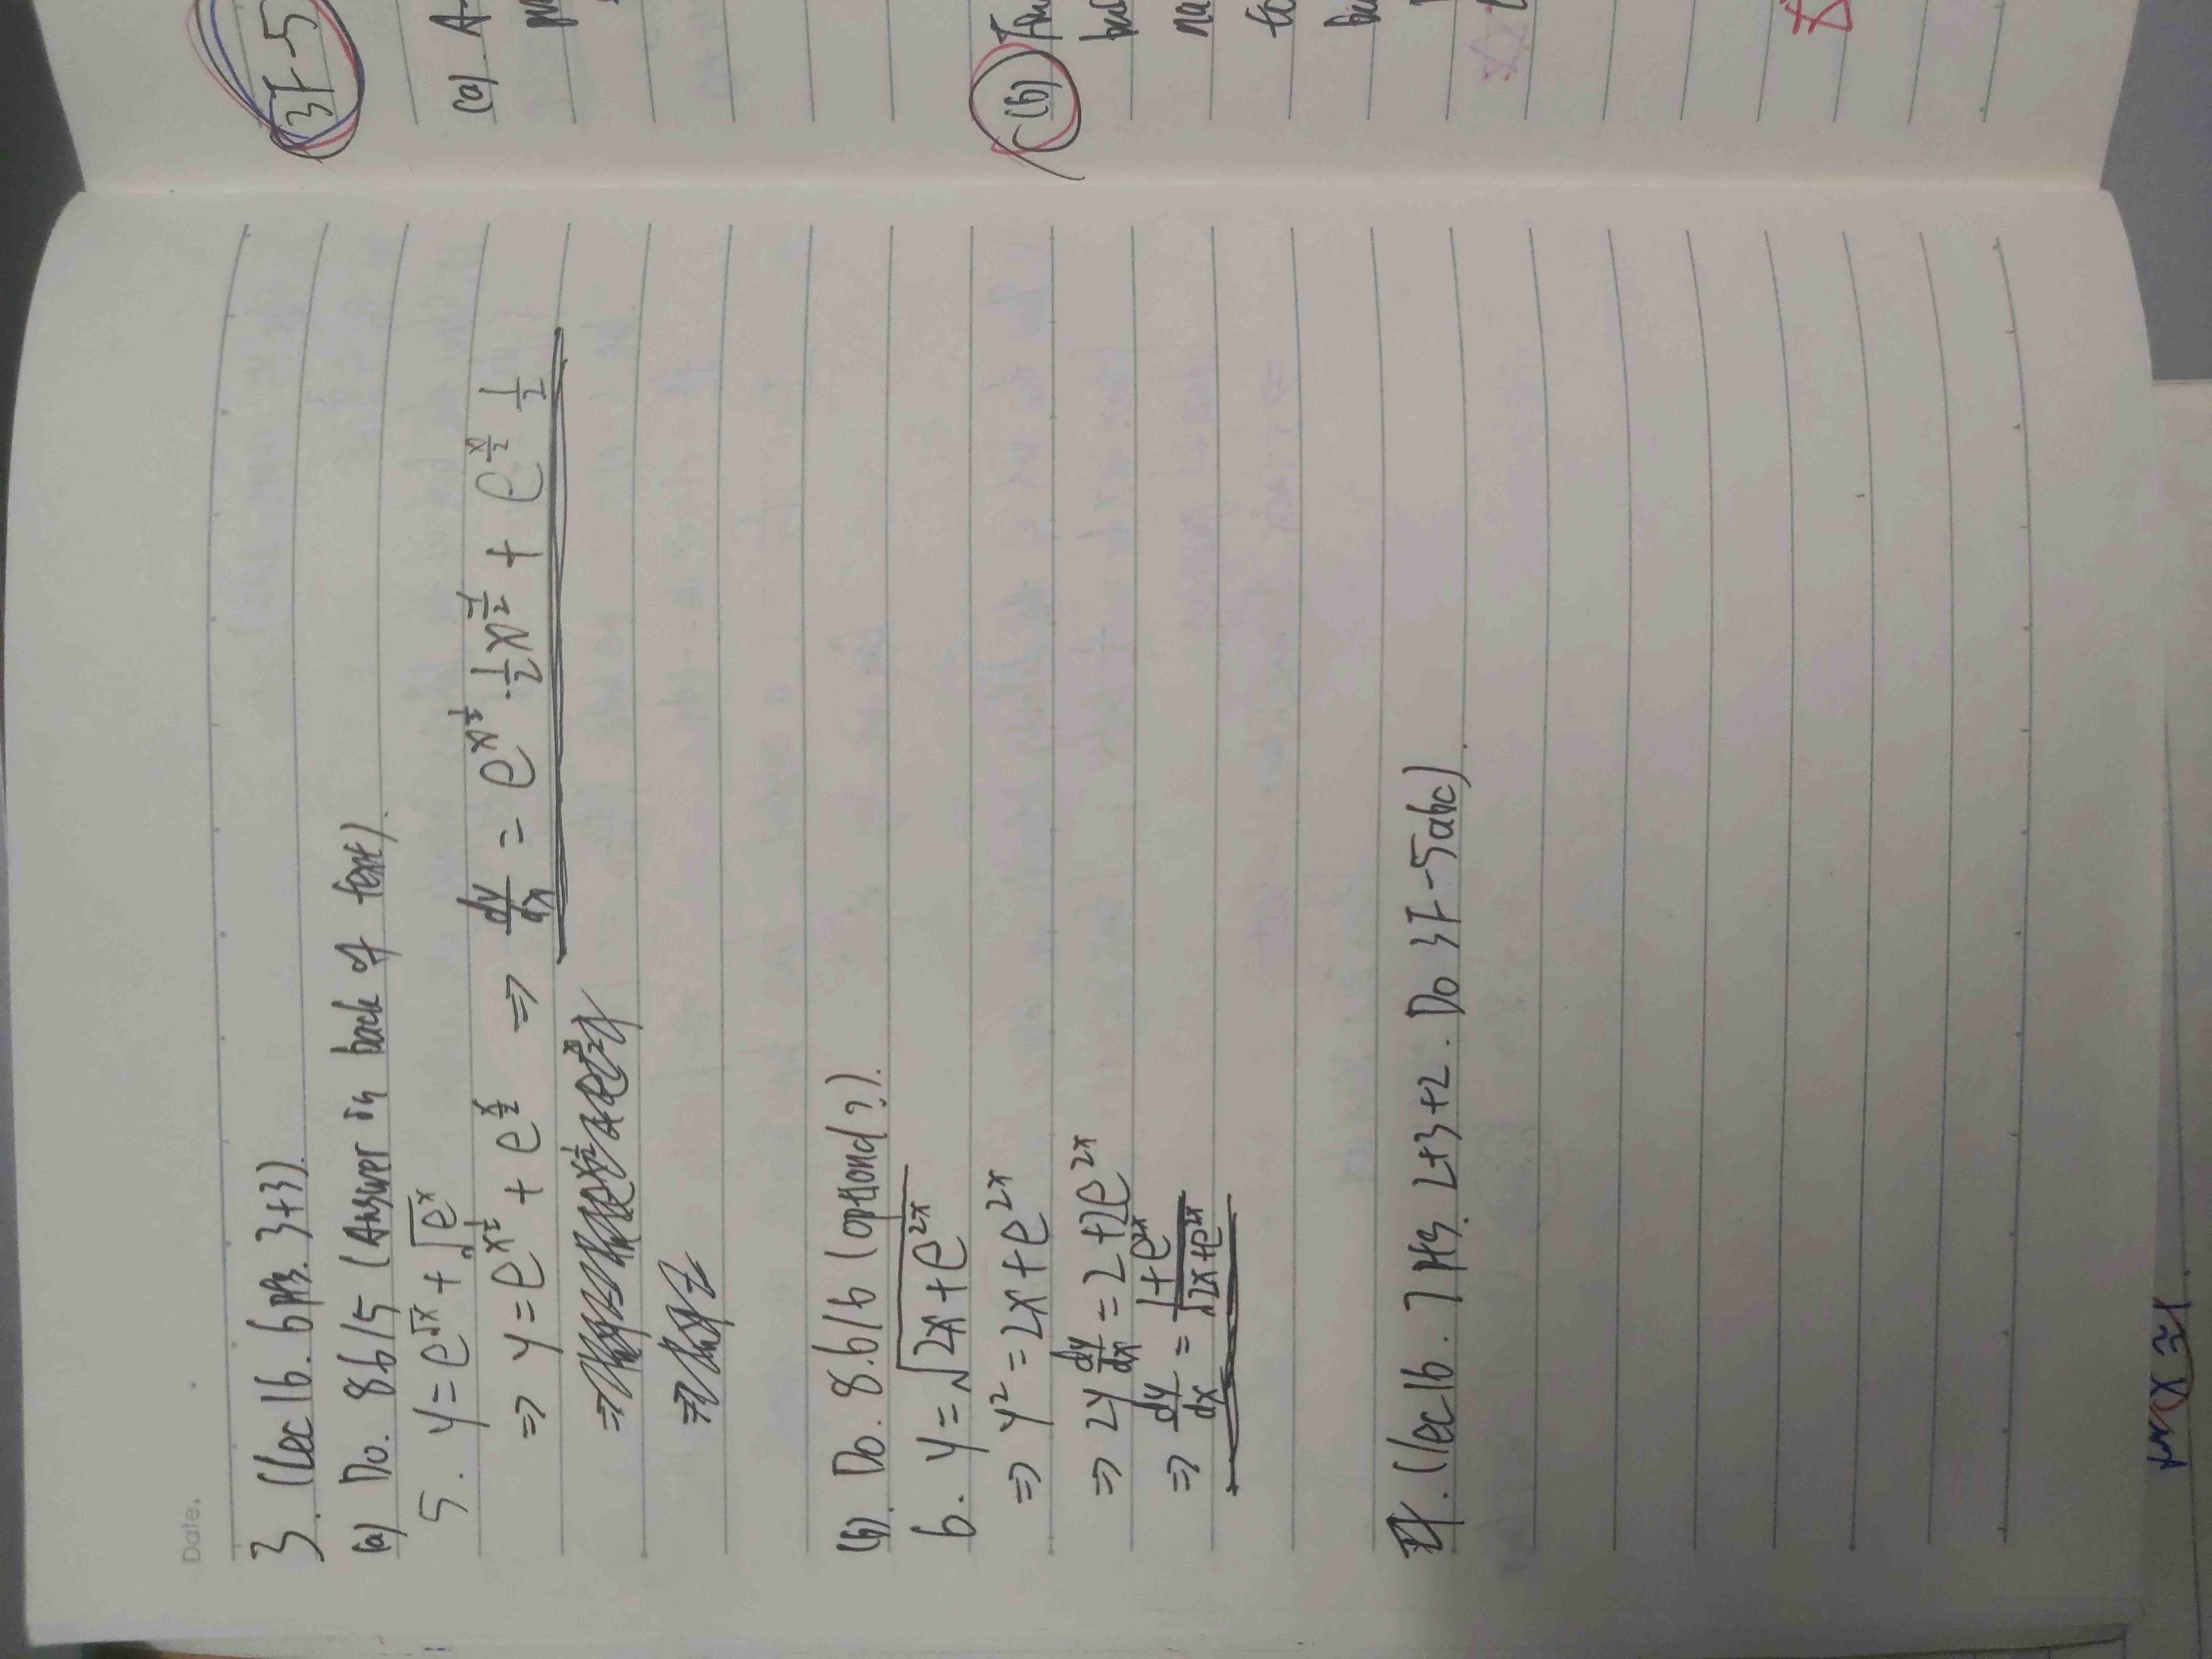 Date.
3. (Lec 16. 6 pts. 3+3).
(a) Do. 8.6/5 (Answer in back of text).
5. y = e^√x + √e^x
⇒ y = e^x^½ + e^x/2 ⇒ dy/dx = e^x^½ · ½x^-½ + e^x/2 ½
(b). Do. 8.6/6 (optional ?).
6. y = √2x + e^2x
⇒ y² = 2x + e^2x
⇒ 2y dy/dx = 2 + 2e^2x
⇒ dy/dx = 1 + e^2x / √2x + e^2x
. (lec 16. 7 pts. 2+3+2. Do 3F-5abc).
3F-5
(a). A
(b)